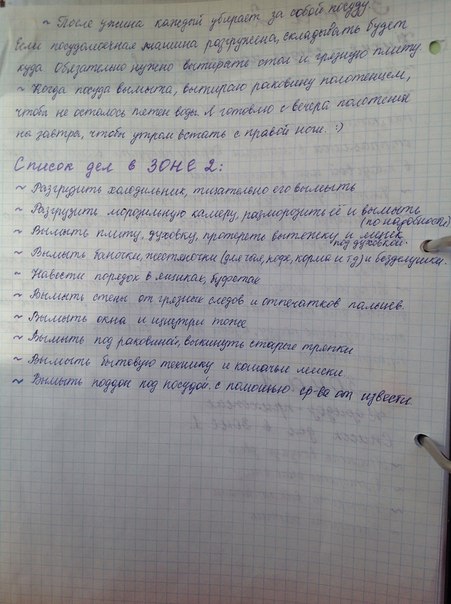 ~ После ужина каждый убирает за собой посуду.
Если посудомоечная машина разгружена, складывать будет
куда. Обязательно нужно вытирать стол и грязную плиту
~ Когда посуда вымыта, вытираю раковину полотенцем,
чтобы не осталось пятен воды. А готовлю с вечера полотенца
на завтра, чтобы утром встать с правой ноги. :)
Список дел в ЗОНЕ 2:
~ Разгрузить холодильник, тщательно его вымыть
~ Разгрузить морозильную камеру, разморозить её и вымыть
(по надобности)
~ Вымыть плиту, духовку, протереть вытяжку и
под духовкой.
~ Вымыть баночки, жестяночки (для чая, кофе, корма и тд) и возделушки.
~ Навести порядок в ящиках, буфетах
~ Вымыть стены от грязных следов и отпечатков пальцев.
~ Вымыть окна и изнутри тоже
~ Вымыть под раковиной, выкинуть старые тряпки
~ Вымыть бытовую технику и кошачьи миски
~ Вымыть поддон под посудой с помощью ср-ва от извести